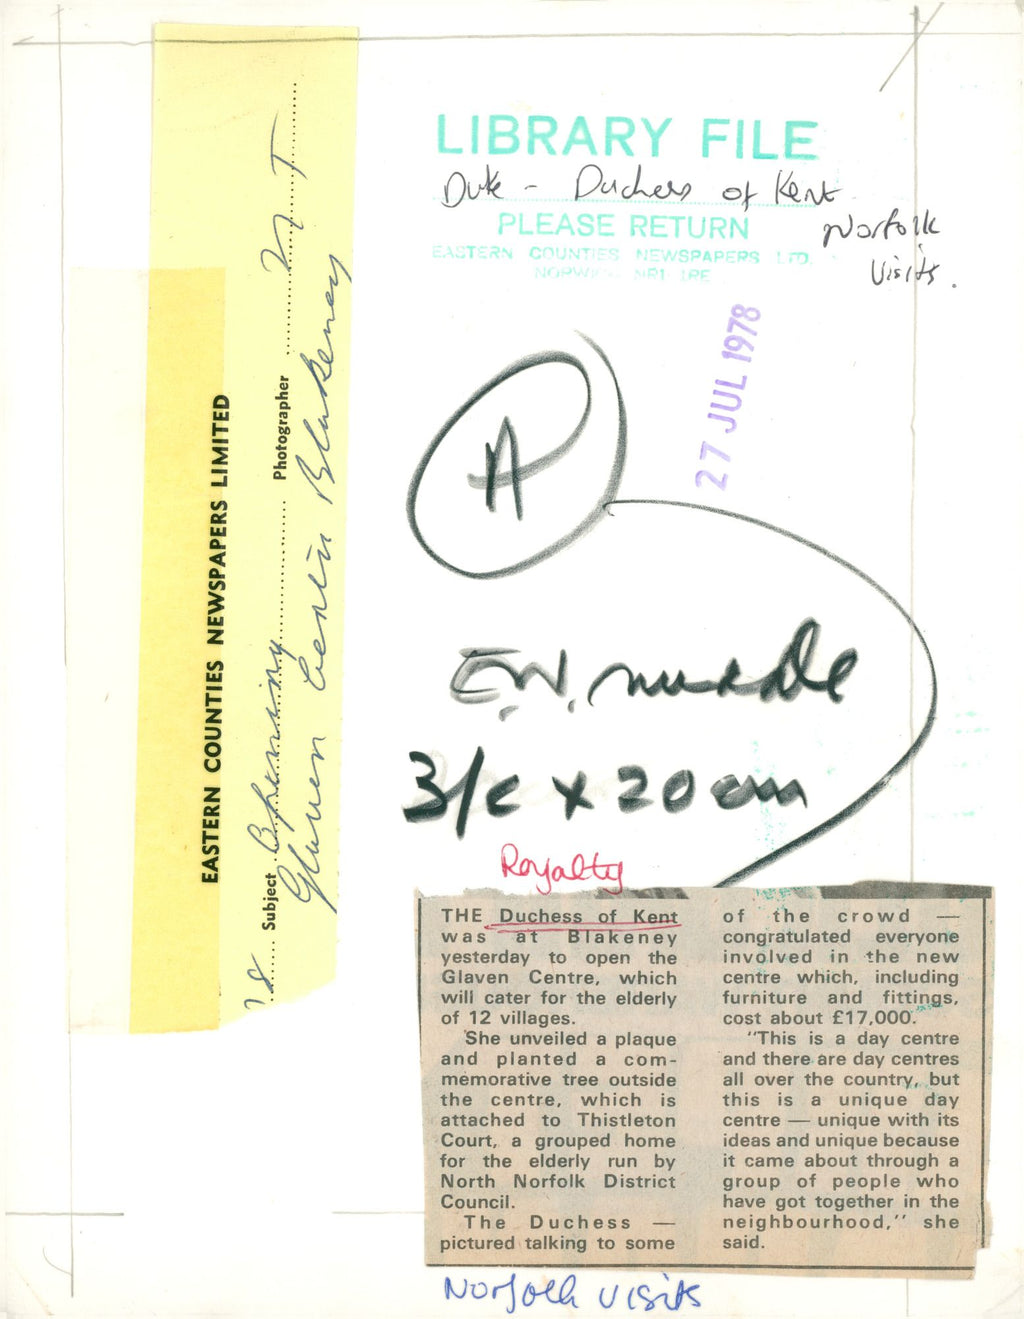 LIBRARY FILE
Duke - Duchess of Kent
Norfolk
Visits.
PLEASE RETURN
EASTERN COUNTIES NEWSPAPERS LTD.
NORWICH NR1 1RE
27 JUL 1978
EASTERN COUNTIES NEWSPAPERS LIMITED
78 Subject Opening Photographer
Glaven Centre Blakeney
A
E.W.
3/c x 20cm
Royalty
THE Duchess of Kent
was at Blakeney
yesterday to open the
Glaven Centre, which
will cater for the elderly
of 12 villages.
She unveiled a plaque
and planted a com-
memorative tree outside
the centre, which is
attached to Thistleton
Court, a grouped home
for the elderly run by
North Norfolk District
Council.
The Duchess —
pictured talking to some
of the crowd —
congratulated everyone
involved in the new
centre which, including
furniture and fittings,
cost about £17,000.
"This is a day centre
and there are day centres
all over the country, but
this is a unique day
centre — unique with its
ideas and unique because
it came about through a
group of people who
have got together in the
neighbourhood," she
said.
Norfolk Visits